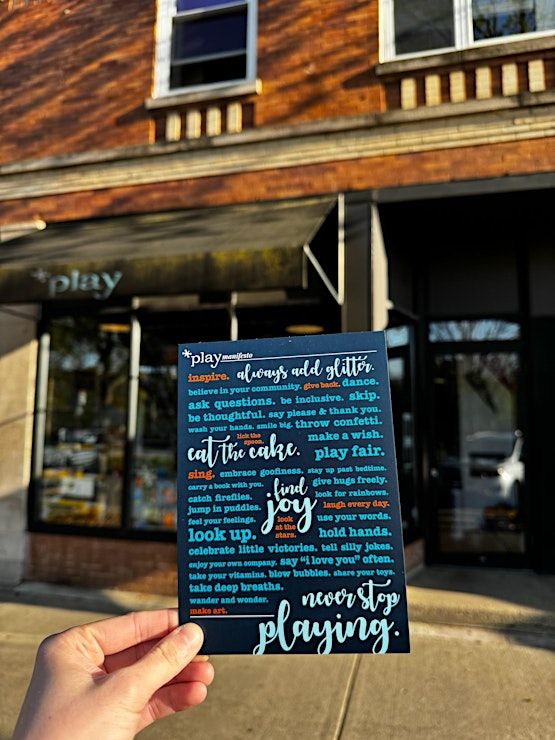 *play
*play manifesto
inspire. always add glitter.
believe in your community. give back. dance.
ask questions. be inclusive. skip.
be thoughtful. say please & thank you.
wash your hands. smile big. throw confetti.
eat the cake. lick the spoon. make a wish.
play fair.
sing. embrace goofiness. stay up past bedtime.
carry a book with you. find joy give hugs freely.
catch fireflies. look for rainbows.
jump in puddles. laugh every day.
feel your feelings. look at the stars. use your words.
look up. hold hands.
celebrate little victories. tell silly jokes.
enjoy your own company. say "i love you" often.
take your vitamins. blow bubbles. share your toys.
take deep breaths.
wander and wonder. never stop
make art. playing.